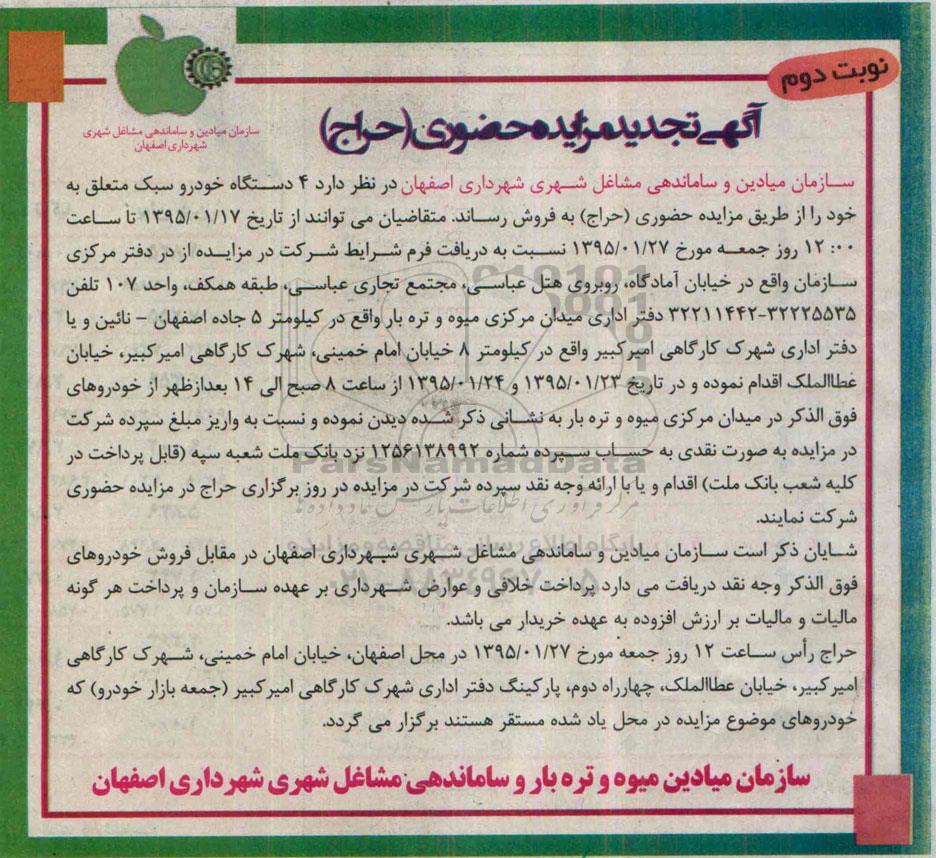 نوبت دوم
سازمان میادین و ساماندهی مشاغل شهری
شهرداری اصفهان
آگهی تجدید مزایده حضوری (حراج)
سازمان میادین و ساماندهی مشاغل شهری شهرداری اصفهان در نظر دارد ۴ دستگاه خودرو سبک متعلق به
خود را از طریق مزایده حضوری (حراج) به فروش رساند. متقاضیان می توانند از تاریخ ۱۳۹۵/۰۱/۱۷ تا ساعت
۱۲ :۰۰ روز جمعه مورخ ۱۳۹۵/۰۱/۲۷ نسبت به دریافت فرم شرایط شرکت در مزایده از در دفتر مرکزی
سازمان واقع در خیابان آمادگاه، روبروی هتل عباسی، مجتمع تجاری عباسی، طبقه همکف، واحد ۱۰۷ تلفن
۳۲۲۱۱۴۴۲-۳۲۲۲۵۵۳۵ دفتر اداری میدان مرکزی میوه و تره بار واقع در کیلومتر ۵ جاده اصفهان – نائین و یا
دفتر اداری شهرک کارگاهی امیرکبیر واقع در کیلومتر ۸ خیابان امام خمینی، شهرک کارگاهی امیرکبیر، خیابان
عطاالملک اقدام نموده و در تاریخ ۱۳۹۵/۰۱/۲۳ و ۱۳۹۵/۰۱/۲۴ از ساعت ۸ صبح الی ۱۴ بعدازظهر از خودروهای
فوق الذکر در میدان مرکزی میوه و تره بار به نشانی ذکر شده دیدن نموده و نسبت به واریز مبلغ سپرده شرکت
در مزایده به صورت نقدی به حساب سپرده شماره ۱۲۵۶۱۳۸۹۹۲ نزد بانک ملت شعبه سپه (قابل پرداخت در
کلیه شعب بانک ملت) اقدام و یا با ارائه وجه نقد سپرده شرکت در مزایده در روز برگزاری حراج در مزایده حضوری
شرکت نمایند.
شایان ذکر است سازمان میادین و ساماندهی مشاغل شهری شهرداری اصفهان در مقابل فروش خودروهای
فوق الذکر وجه نقد دریافت می دارد پرداخت خلافی و عوارض شهرداری بر عهده سازمان و پرداخت هر گونه
مالیات و مالیات بر ارزش افزوده به عهده خریدار می باشد.
حراج رأس ساعت ۱۲ روز جمعه مورخ ۱۳۹۵/۰۱/۲۷ در محل اصفهان، خیابان امام خمینی، شهرک کارگاهی
امیرکبیر، خیابان عطاالملک، چهارراه دوم، پارکینگ دفتر اداری شهرک کارگاهی امیرکبیر (جمعه بازار خودرو) که
خودروهای موضوع مزایده در محل یاد شده مستقر هستند برگزار می گردد.
سازمان میادین میوه و تره بار و ساماندهی مشاغل شهری شهرداری اصفهان
ParsNamadData
مرکز فرآوری اطلاعات پارس نماد داده ها
پایگاه اطلاع رسانی مناقصه و مزایده